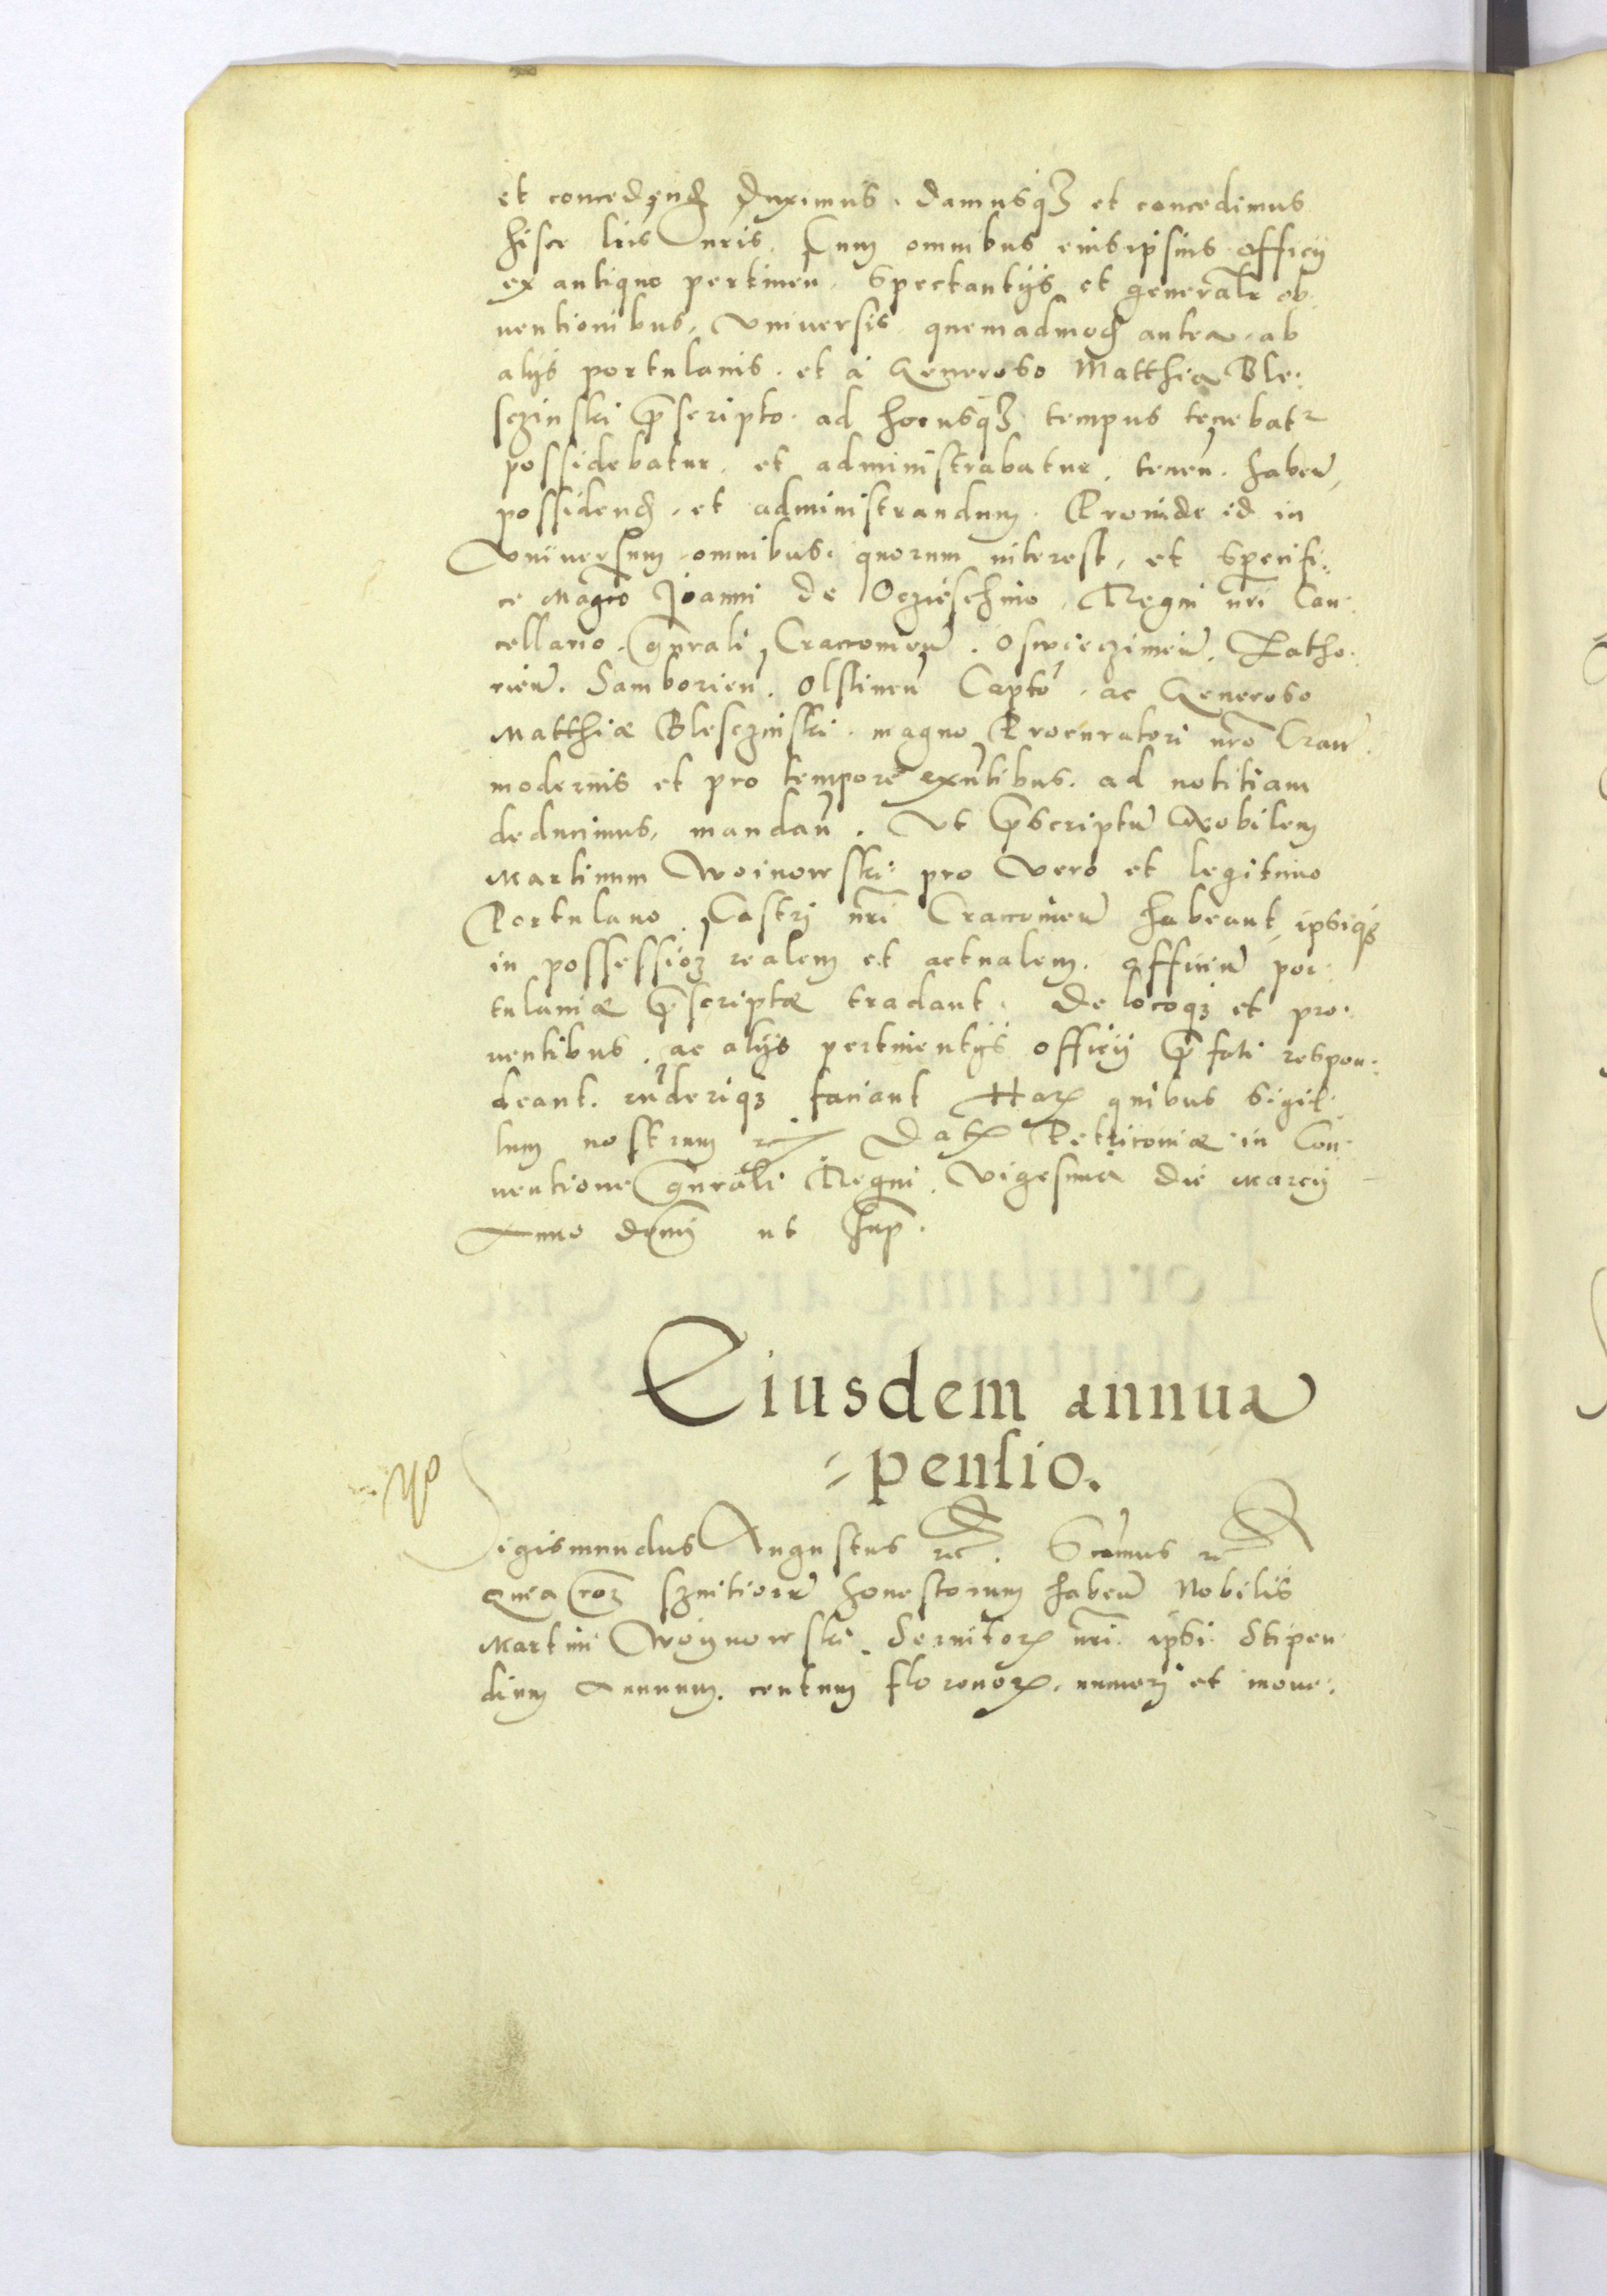 et concedend duximus. damusq₃ et concedimus
hisce lris nris. Cum omnibus eiusipsius officij
ex antiquo pertinen. spectantijs et generalr ob
uentionibus, vniuersis quemadmod antea ab
alijs portulanis. et à Generoso Matthia Ble:
sczinski p̄scripto. ad hocusq₃ tempus tenebatr
possidebatur. et administrabatur. tenen. haben̄,
possidend. et administrandum. Proinde id in
Vniuersum omnibus. quorum interest, et specifi:
ce Magco Joanni de Oczieschino, Regni nri Can:
cellario. Gn̄rali, Cracouien̄. Osvieczimen̄. Zatho:
rien̄. Samborien. Olstinen̄ Capto. ac Generoso
Matthiæ Blesczinski. magno Procuratori nro Crac̄.
modernis et pro tempore exn̄tibus. ad notitiam
deducimus, mandan̄. Vt p̄scriptū Nobilem
Martinum Woinowski pro vero et legitimo
Portulano. Castri nri Cracouien̄ habeant, ipsiq₃
in possessioȝ realem et actualem. officiū por:
tulaniæ p̄scriptæ tradant. De locoq₃ et pro:
uentibus. ac alijs pertinentijs officij p̄fati respon:
deant. rn̄deriq₃ faciant Harꝝ quibus sigil:
lum nostrum rc Datꝝ Petricouiæ in Con:
uentione Gn̄rali Regni. Vigesima die Marcij
Anno dom̄ ut sup̄.
Eiusdem annua
pensio.
Sigismundus Augustus rc. Scimus rc
quia roȝ seruitiorū honestorum haben̄ Nobilis
Martini Woynowski. Seruitorꝝ nri. ipsi. Stipen
dium Annuum. centum florenorꝝ. numeri et mone: